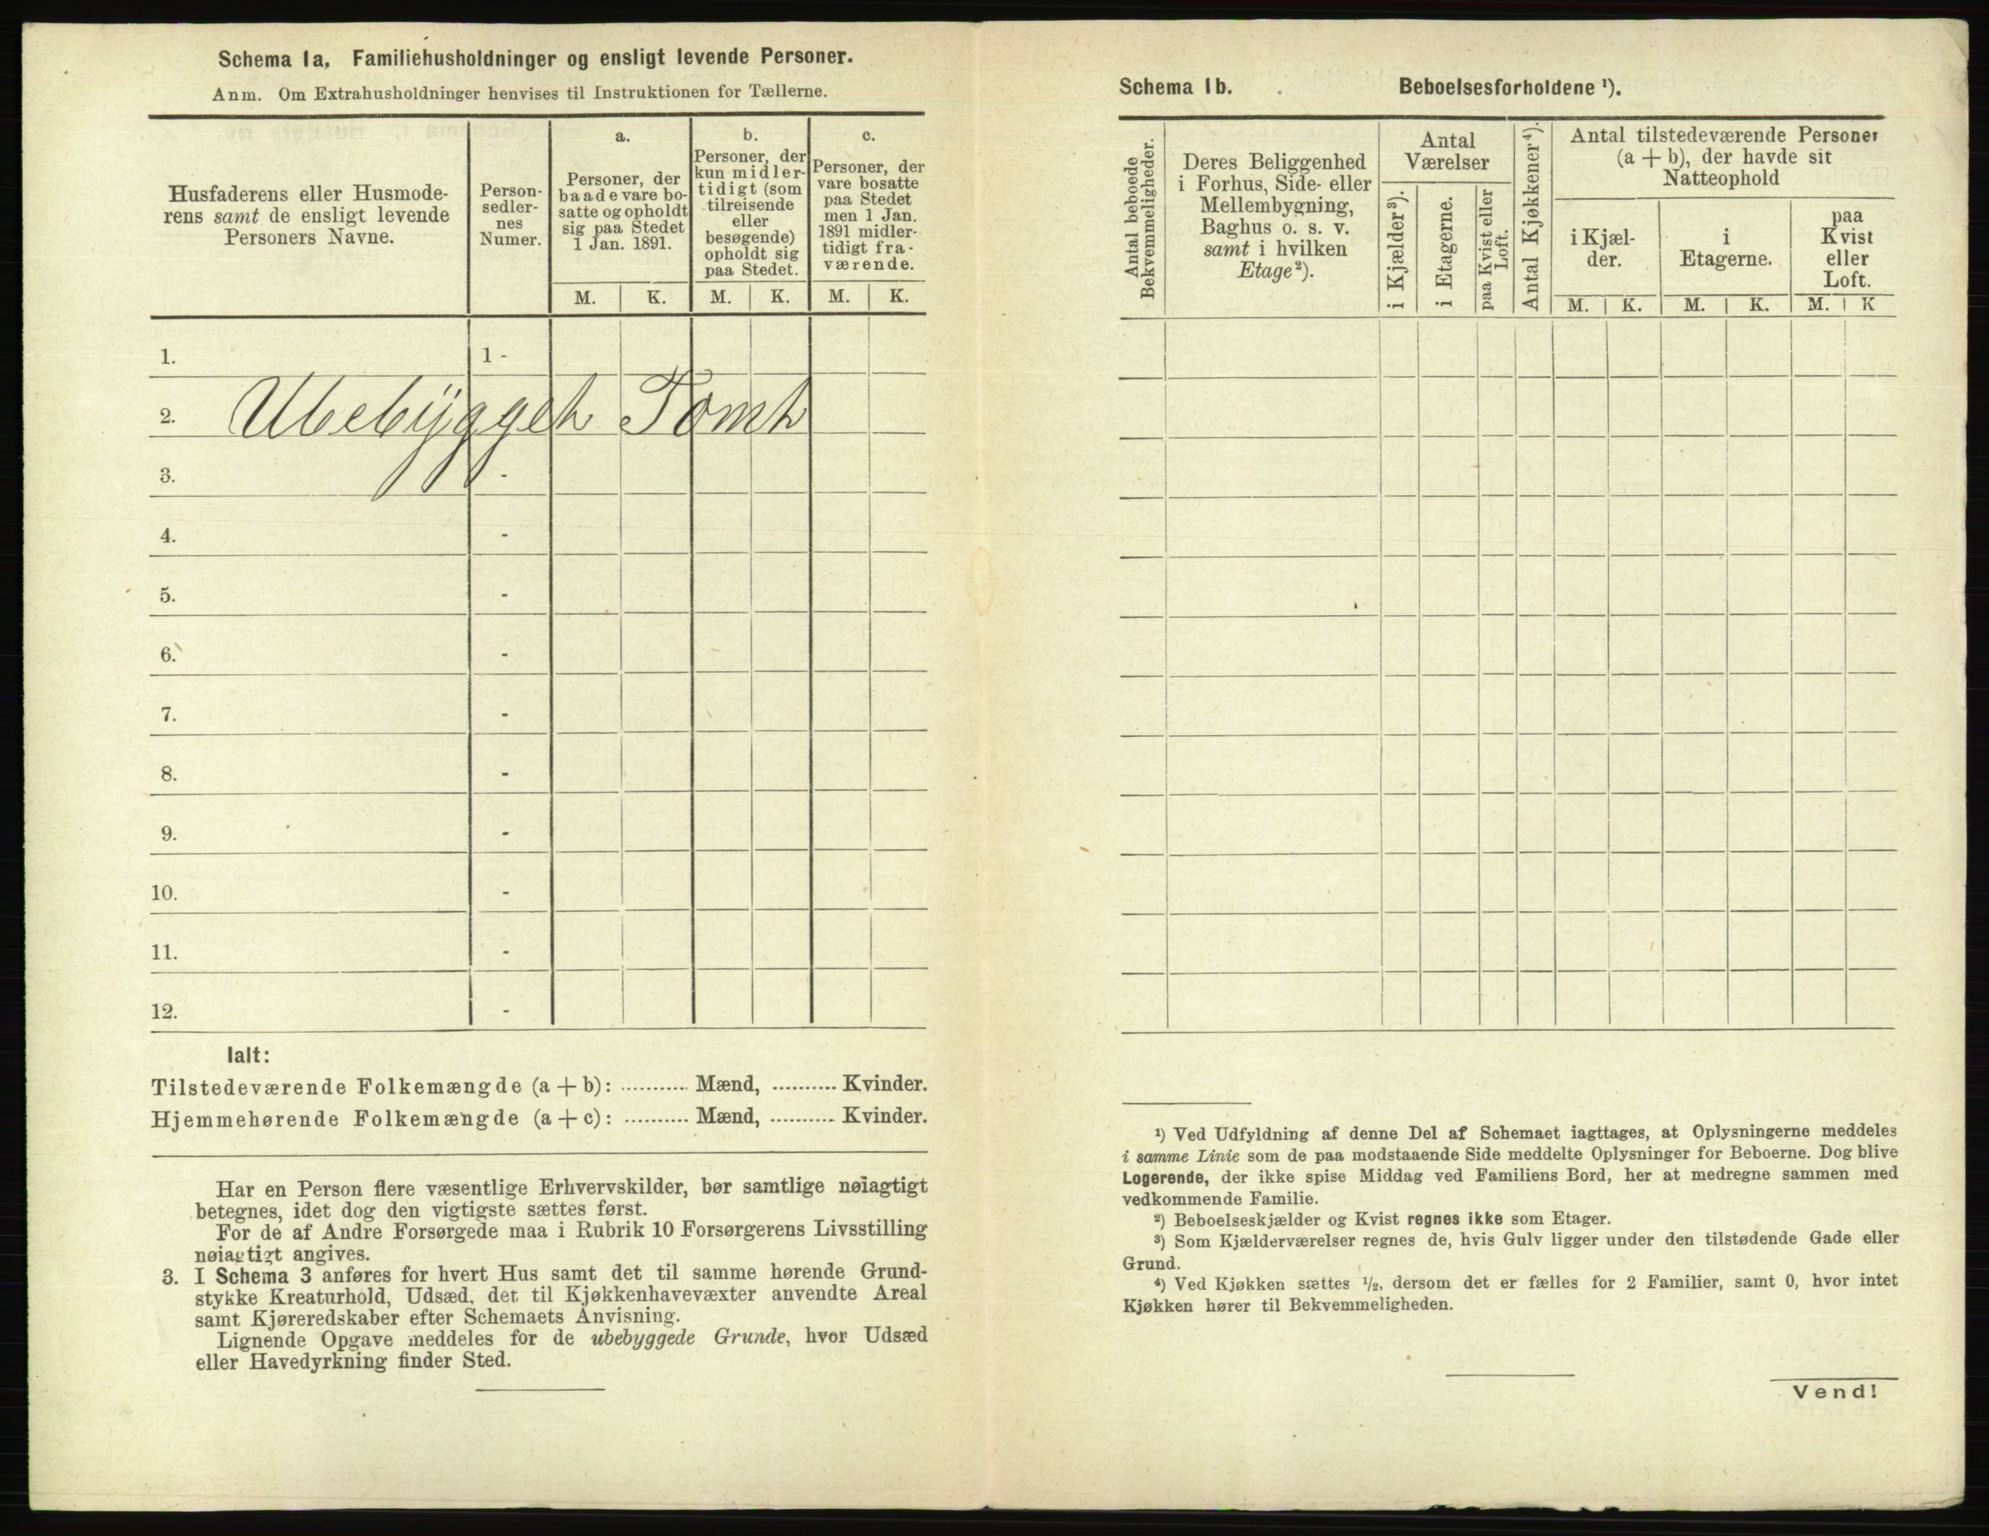 Schema 1a, Familiehusholdninger og ensligt levende Personer.
Anm. Om Extrahusholdninger henvises til Instruktionen for Tællerne.
Husfaderens eller Husmode-
rens samt de ensligt levende
Personers Navne.
Person-
sedler-
nes
Numer.
a.
Personer, der
baade vare bo-
satte og opholdt
sig paa Stedet
1 Jan. 1891.
b.
Personer, der
kun midler-
tidigt (som
tilreisende
eller
besøgende)
opholdt sig
paa Stedet.
c.
Personer, der
vare bosatte
paa Stedet
men 1 Jan.
1891 midler-
tidigt fra-
værende.
M. K. M. K. M. K.
1. 1 -
2. Ubebygget Tomt
3. -
4. -
5. -
6. -
7. -
8. -
9. -
10. -
11. -
12. -
Ialt:
Tilstedeværende Folkemængde (a + b): .......... Mænd, .......... Kvinder.
Hjemmehørende Folkemængde (a + c): .......... Mænd, .......... Kvinder.
Har en Person flere væsentlige Erhvervskilder, bør samtlige nøiagtigt
betegnes, idet dog den vigtigste sættes først.
For de af Andre Forsørgede maa i Rubrik 10 Forsørgerens Livsstilling
nøiagtigt angives.
3. I Schema 3 anføres for hvert Hus samt det til samme hørende Grund-
stykke Kreaturhold, Udsæd, det til Kjøkkenhavevæxter anvendte Areal
samt Kjøreredskaber efter Schemaets Anvisning.
Lignende Opgave meddeles for de ubebyggede Grunde, hvor Udsæd
eller Havedyrkning finder Sted.
Schema 1b. Beboelsesforholdene ¹).
Antal beboede
Bekvemmeligheder.
Deres Beliggenhed
i Forhus, Side- eller
Mellembygning,
Baghus o. s. v.
samt i hvilken
Etage²).
Antal
Værelser
i Kjælder³).
i Etagerne.
paa Kvist eller
Loft.
Antal Kjøkkener⁴).
Antal tilstedeværende Personer
(a + b), der havde sit
Natteophold
i Kjæl-
der.
i
Etagerne.
paa
Kvist
eller
Loft.
M. K. M. K. M. K
¹) Ved Udfyldning af denne Del af Schemaet iagttages, at Oplysningerne meddeles
i samme Linie som de paa modstaaende Side meddelte Oplysninger for Beboerne. Dog blive
Logerende, der ikke spise Middag ved Familiens Bord, her at medregne sammen med
vedkommende Familie.
²) Beboelseskjælder og Kvist regnes ikke som Etager.
³) Som Kjælderværelser regnes de, hvis Gulv ligger under den tilstødende Gade eller
Grund.
⁴) Ved Kjøkken sættes ½, dersom det er fælles for 2 Familier, samt 0, hvor intet
Kjøkken hører til Bekvemmeligheden.
Vend!